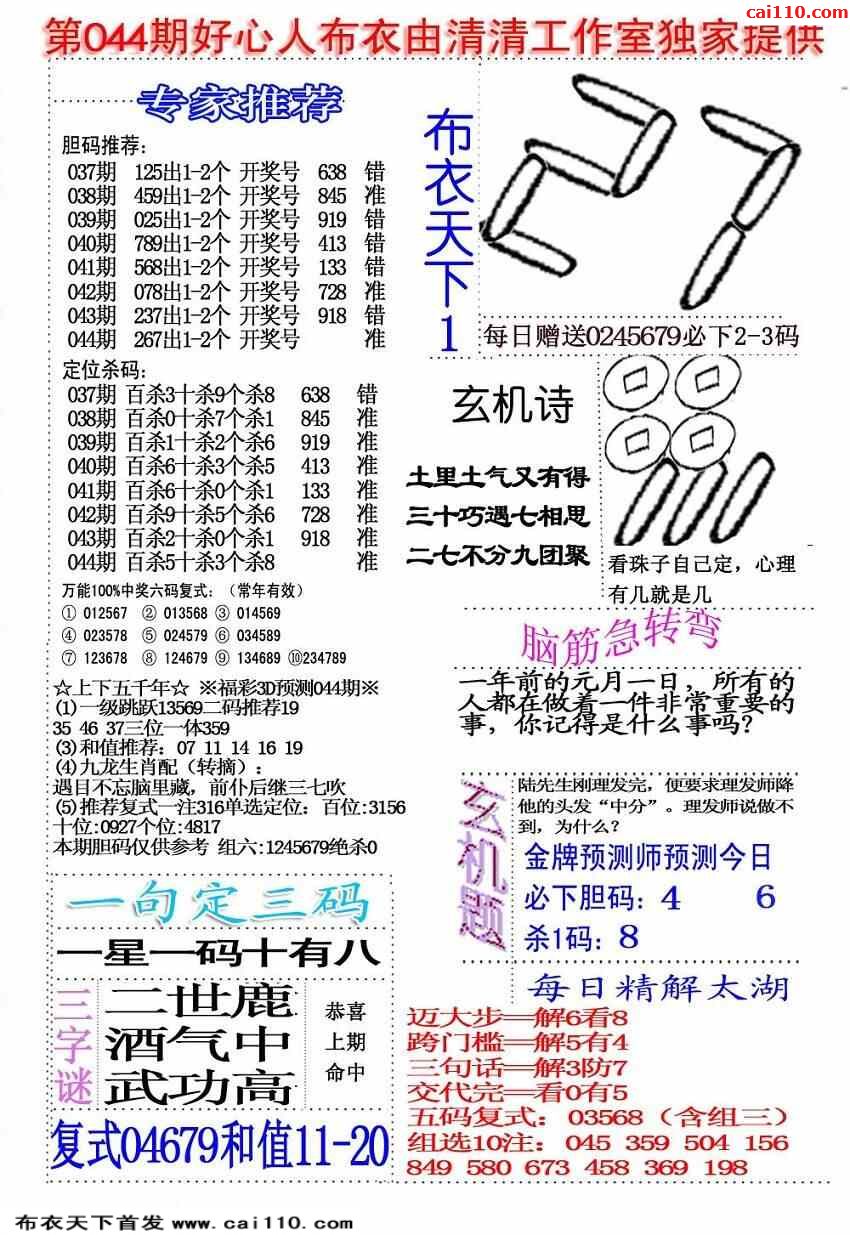 cai110.com
第044期好心人布衣由清清工作室独家提供
专家推荐
胆码推荐:
037期 125出1-2个 开奖号 638 错
038期 459出1-2个 开奖号 845 准
039期 025出1-2个 开奖号 919 错
040期 789出1-2个 开奖号 413 错
041期 568出1-2个 开奖号 133 错
042期 078出1-2个 开奖号 728 准
043期 237出1-2个 开奖号 918 错
044期 267出1-2个 开奖号 准
定位杀码:
037期 百杀3十杀9个杀8 638 错
038期 百杀0十杀7个杀1 845 准
039期 百杀1十杀2个杀6 919 准
040期 百杀6十杀3个杀5 413 准
041期 百杀6十杀0个杀1 133 准
042期 百杀9十杀5个杀6 728 准
043期 百杀2十杀0个杀1 918 准
044期 百杀5十杀3个杀8 准
万能100%中奖六码复式:（常年有效）
① 012567 ② 013568 ③ 014569
④ 023578 ⑤ 024579 ⑥ 034589
⑦ 123678 ⑧ 124679 ⑨ 134689 ⑩234789
☆上下五千年☆ ※福彩3D预测044期※
(1)一级跳跃13569二码推荐19
35 46 37三位一体359
(3)和值推荐: 07 11 14 16 19
(4)九龙生肖配（转摘）:
遇目不忘脑里藏，前仆后继三七吹
(5)推荐复式一注316单选定位: 百位:3156
十位:0927个位:4817
本期胆码仅供参考 组六:1245679绝杀0
一句定三码
一星一码十有八
三字谜
二世鹿
酒气中
武功高
恭喜
上期
命中
复式04679和值11-20
布衣天下1
27
每日赠送0245679必下2-3码
玄机诗
土里土气又有得
三十巧遇七相思
二七不分九团聚
看珠子自己定，心理
有几就是几
脑筋急转弯
一年前的元月一日，所有的
人都在做着一件非常重要的
事，你记得是什么事吗?
玄机题
陆先生刚理发完，便要求理发师降
他的头发“中分”。理发师说做不
到，为什么?
金牌预测师预测今日
必下胆码: 4 6
杀1码: 8
每日精解太湖
迈大步══解6看8
跨门槛══解5有4
三句话══解3防7
交代完══看0有5
五码复式: 03568（含组三）
组选10注: 045 359 504 156
849 580 673 458 369 198
布衣天下首发 www.cai110.com